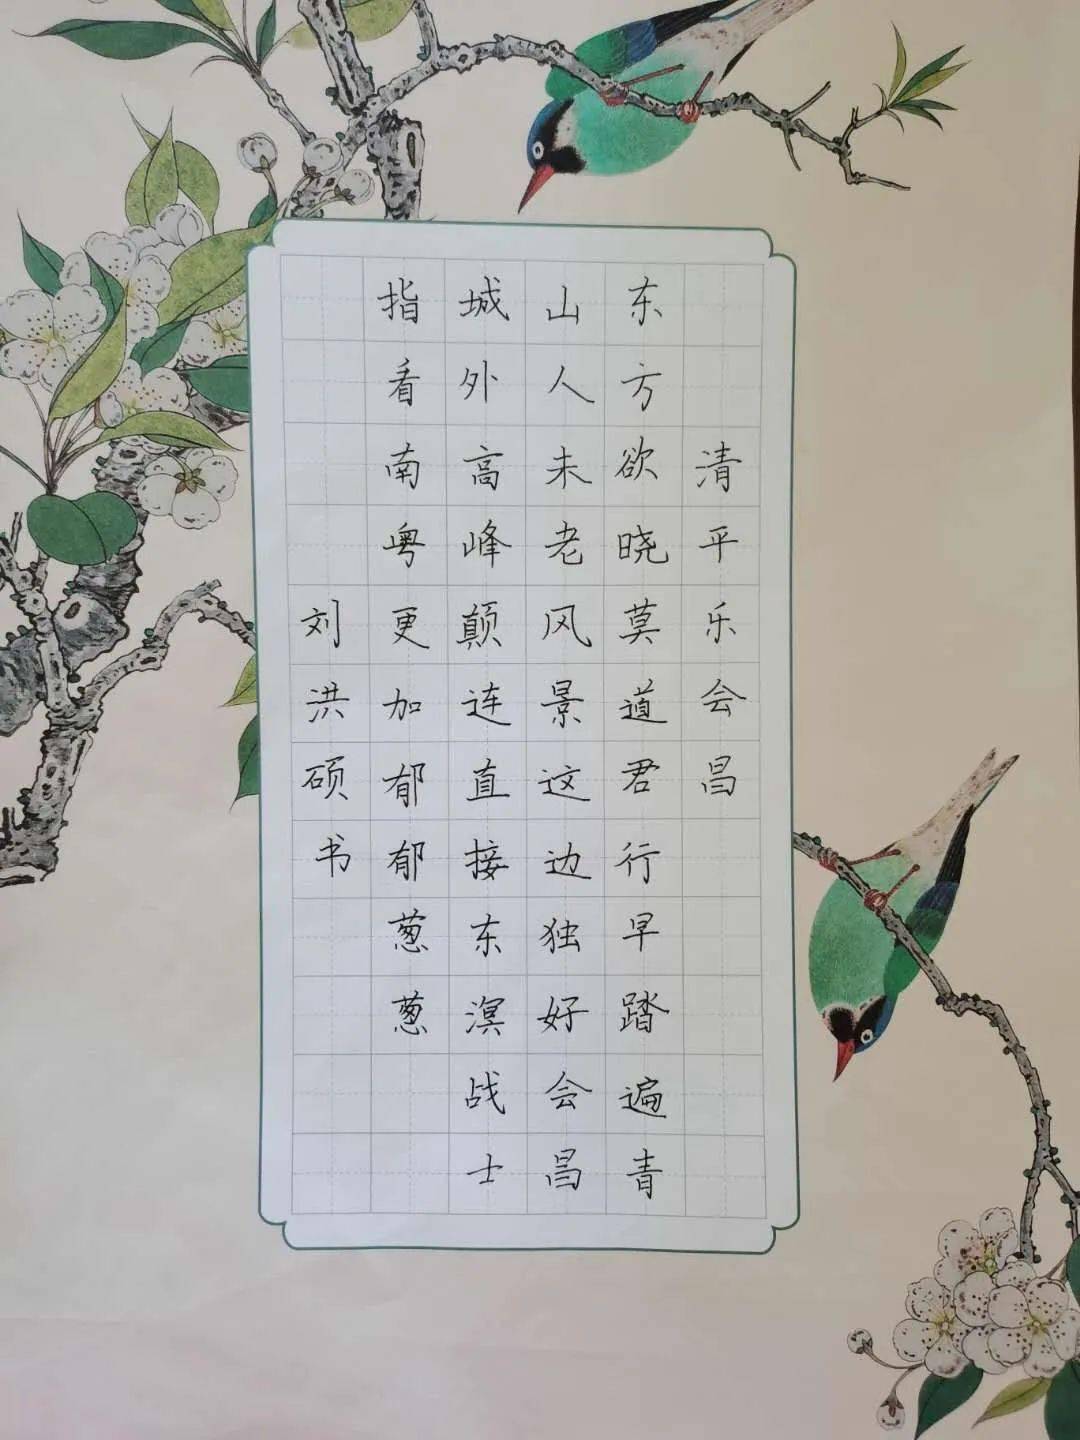 清平乐会昌
东方欲晓莫道君行早踏遍青
山人未老风景这边独好会昌
城外高峰颠连直接东溟战士
指看南粤更加郁郁葱葱
刘洪硕书